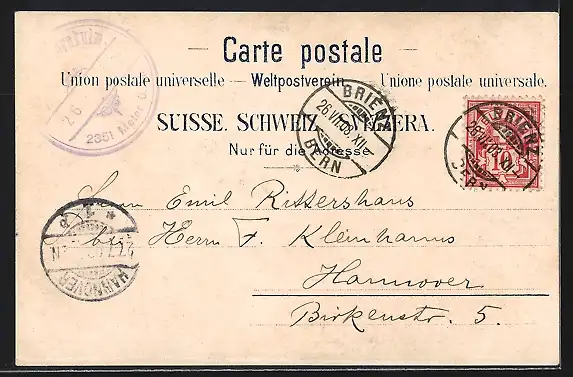 Carte postale
Union postale universelle – Weltpostverein – Unione postale universale.
SUISSE. SCHWEIZ. SVIZZERA.
Nur für die Adresse.
BRIENZ
26.VII.03.XII
BERN
BRIENZ
26.VII.03.XII
BERN
10
2351 Meter
HANNOVER
Herrn Emil Rittershaus
bei Herrn F. Kleinhanns
Hannover
Birkenstr. 5.